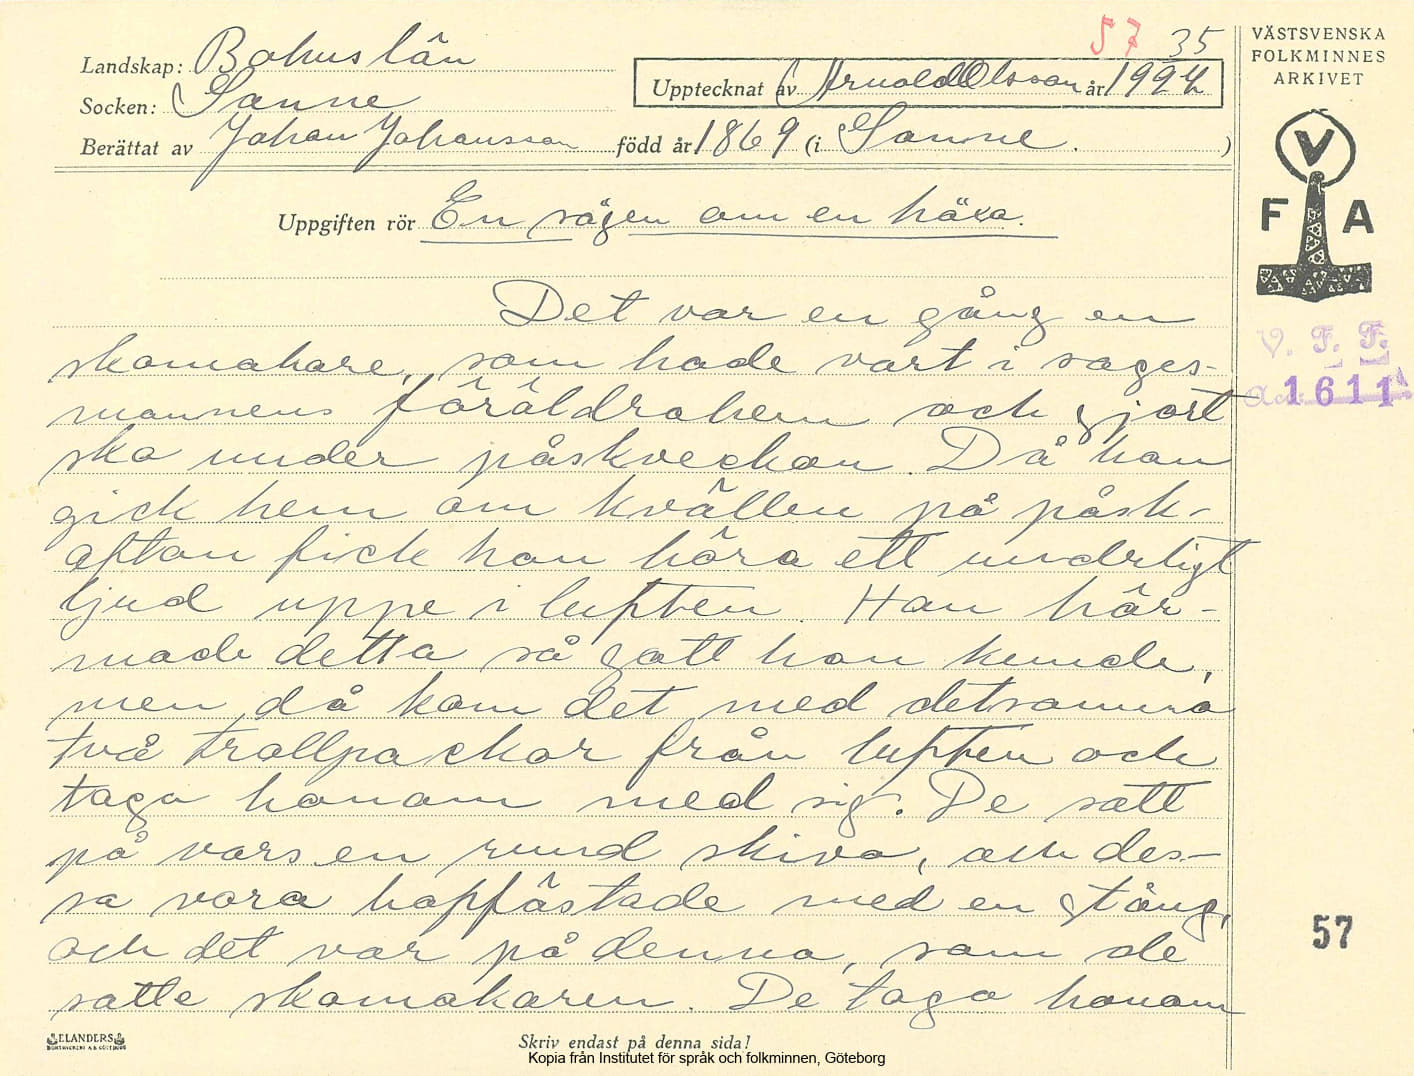 57 35
Landskap: Bohuslän
Socken: Sanne
Upptecknat av Arnold Olsson år 1924
Berättat av Johan Johansson född år 1869 (i Sanne.)
Uppgiften rör En sägen om en häxa.
Det var en gång en
skomakare, som hade vart i sages-
mannens föräldrahem och gjort
sko under påskveckan. Då han
gick hem om kvällen på påsk-
aftan fick han höra ett underligt
ljud uppe i luften. Han här-
made detta så gott han kunde,
men då kom det med detsamma
två trollpackor från luften och
taga honom med sig. De satt
på vars en rund skiva, och des-
sa vora hopfästade med en stång,
och det var på denna, som de
satte skomakaren. De taga honom
ELANDERS
Skriv endast på denna sida!
Kopia från Institutet för språk och folkminnen, Göteborg
VÄSTSVENSKA
FOLKMINNES
ARKIVET
V
F A
V. F. F.
Acc. 1611
57